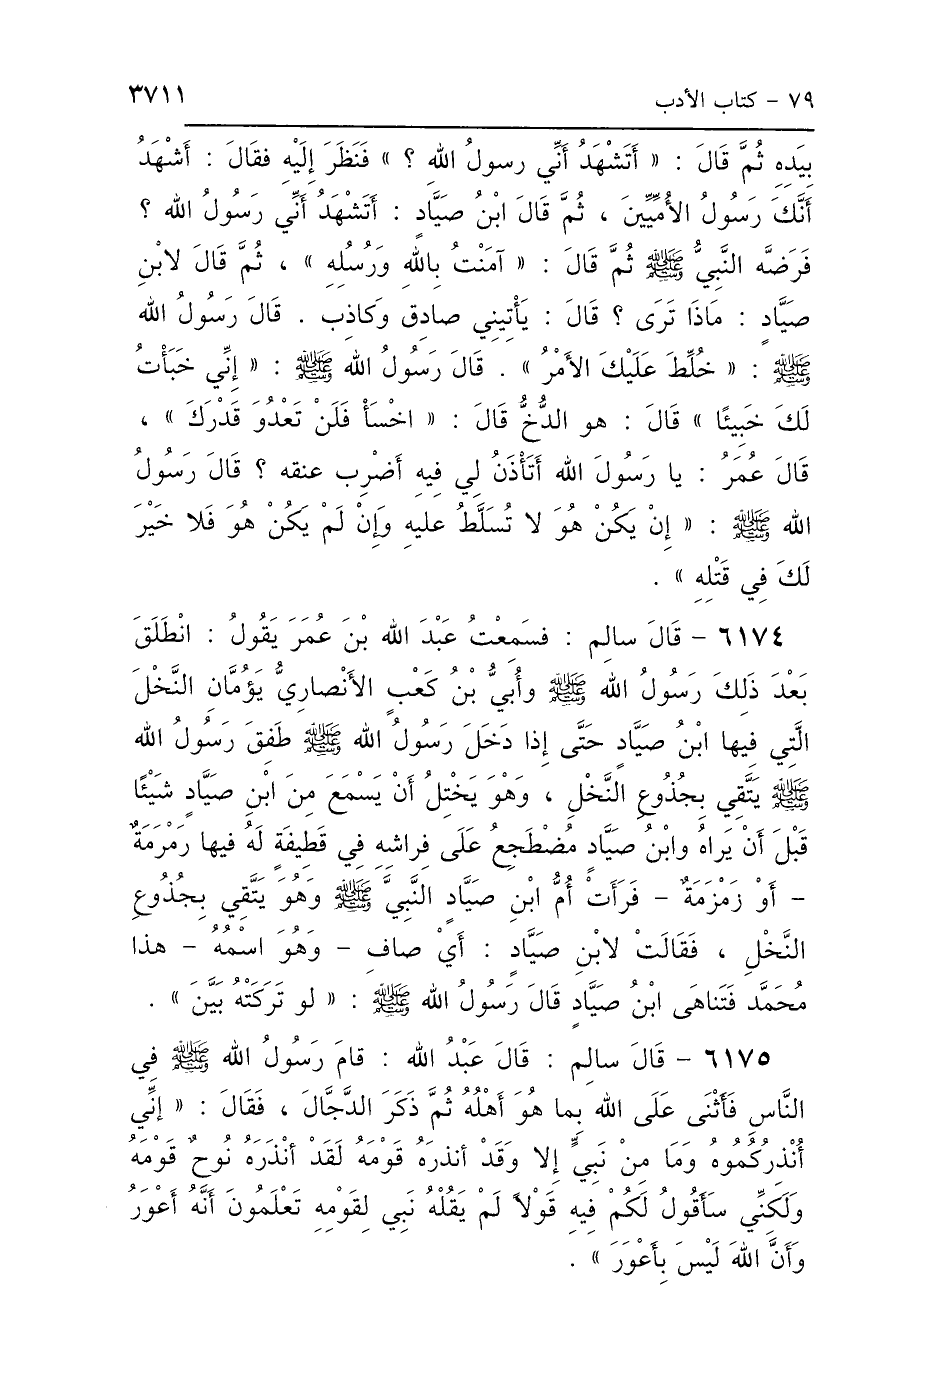 ٧٩ - كتاب الأدب ٣٧١١
بِيَدِهِ ثُمَّ قَالَ : « أَتَشْهَدُ أَنِّي رسولُ الله ؟ » فَنَظَرَ إِلَيْهِ فقَالَ : أَشْهَدُ
أَنَّكَ رَسُولُ الأُمِّيِّينَ ، ثُمَّ قَالَ ابْنُ صَيَّادٍ : أَتَشْهَدُ أَنِّي رَسُولُ الله ؟
فَرَضَّه النَّبِيُّ ﷺ ثُمَّ قَالَ : « آمَنْتُ بِاللهِ وَرُسُلِهِ » ، ثُمَّ قَالَ لابْنِ
صَيَّادٍ : مَاذَا تَرَى ؟ قَالَ : يَأْتِينِي صادِق وكَاذِب . قَالَ رَسُولُ الله
ﷺ : « خُلِّطَ عَلَيْكَ الأَمْرُ » . قَالَ رَسُولُ الله ﷺ : « إِنِّي خَبَأْتُ
لَكَ خَبِيئًا » قَالَ : هو الدُّخُّ قَالَ : « اخْسَأْ فَلَنْ تَعْدُوَ قَدْرَكَ » ،
قَالَ عُمَرُ : يا رَسُولَ الله أَتَأْذَنُ لي فِيهِ أَضْرِب عنقه ؟ قَالَ رَسُولُ
الله ﷺ : « إِنْ يَكُنْ هُوَ لا تُسَلَّطُ عليهِ وَإِنْ لَمْ يَكُنْ هُوَ فَلا خَيْرَ
لَكَ فِي قَتْلِهِ » .
٦١٧٤ - قَالَ سالِم : فسَمِعْتُ عَبْدَ الله بْنَ عُمَرَ يَقُولُ : انْطَلَقَ
بَعْدَ ذَلِكَ رَسُولُ الله ﷺ وأُبيُّ بْنُ كَعْبٍ الأَنْصاريُّ يَؤُمَّانِ النَّخْلَ
الَّتِي فِيها ابْنُ صَيَّادٍ حَتَّى إِذا دَخَلَ رَسُولُ الله ﷺ طَفِقَ رَسُولُ الله
ﷺ يَتَّقِي بِجُذُوعِ النَّخْلِ ، وَهْوَ يَخْتِلُ أَنْ يَسْمَعَ مِنَ ابْنِ صَيَّادٍ شَيْئًا
قَبْلَ أَنْ يَراهُ وابْنُ صَيَّادٍ مُضْطَجِعٌ عَلَى فِراشِهِ فِي قَطِيفَةٍ لَهُ فيها رَمْرَمَةٌ
- أَوْ زَمْزَمَةٌ - فَرَأَتْ أُمُّ ابْنِ صَيَّادٍ النَّبِيَّ ﷺ وَهُوَ يَتَّقِي بِجُذُوعِ
النَّخْلِ ، فَقَالَتْ لابْنِ صَيَّادٍ : أَيْ صاف - وَهُوَ اسْمُهُ - هذا
مُحَمَّد فَتَناهَى ابْنُ صَيَّادٍ قَالَ رَسُولُ الله ﷺ : « لو تَرَكَتْهُ بَيَّنَ » .
٦١٧٥ - قَالَ سالِم : قَالَ عَبْدُ الله : قامَ رَسُولُ الله ﷺ فِي
النَّاسِ فَأَثْنَى عَلَى الله بِما هُوَ أَهْلُهُ ثُمَّ ذَكَرَ الدَّجَّالَ ، فَقَالَ : « إِنِّي
أُنْذِرُكُمُوهُ وَمَا مِنْ نَبِيٍّ إِلا وَقَدْ أنذرَهُ قَوْمَهُ لَقَدْ أنْذَرَهُ نُوحٌ قَوْمَهُ
وَلَكِنِّي سَأَقُولُ لَكُمْ فِيهِ قَوْلاً لَمْ يَقُلْهُ نَبي لِقَوْمِهِ تَعْلَمُونَ أَنَّهُ أَعْوَرُ
وَأَنَّ اللهَ لَيْسَ بِأَعْوَرَ » .